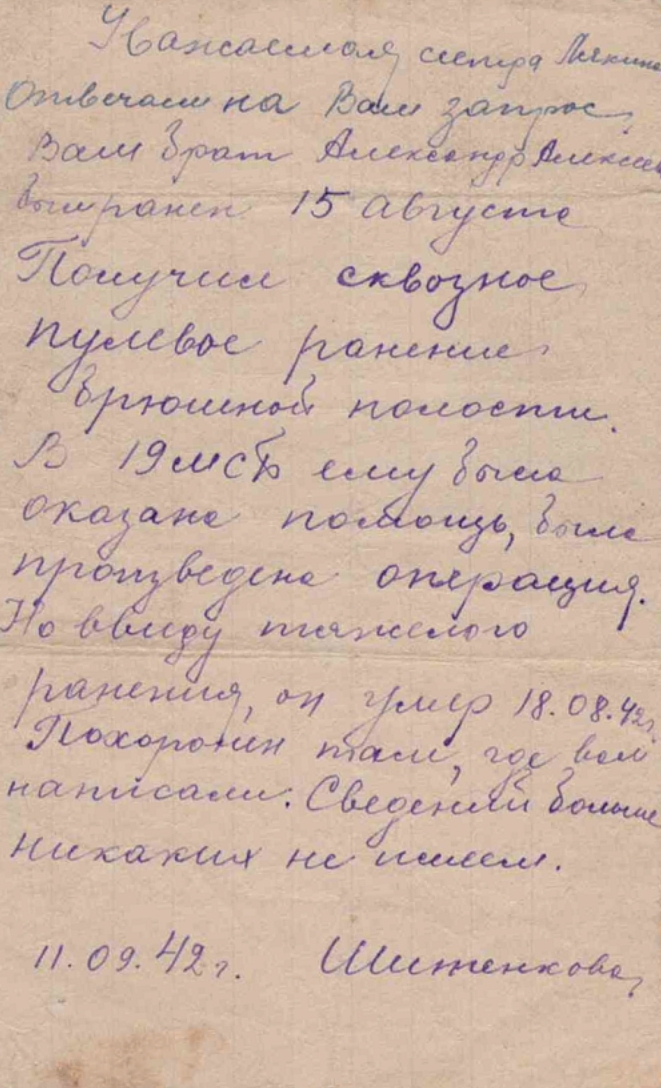 Уважаемая сестра
Отвечаем на Ваш запрос,
Ваш брат Александр Алексее
был ранен 15 августа
Получил сквозное
пулевое ранение
брюшной полости.
В 19 мсб ему была
оказана помощь, была
произведена операция.
Но ввиду тяжелого
ранения, он умер 18.08.42г.
Похоронен там, где вам
написали. Сведений больше
никаких не имеем.
11.09.42г. Шитенкова